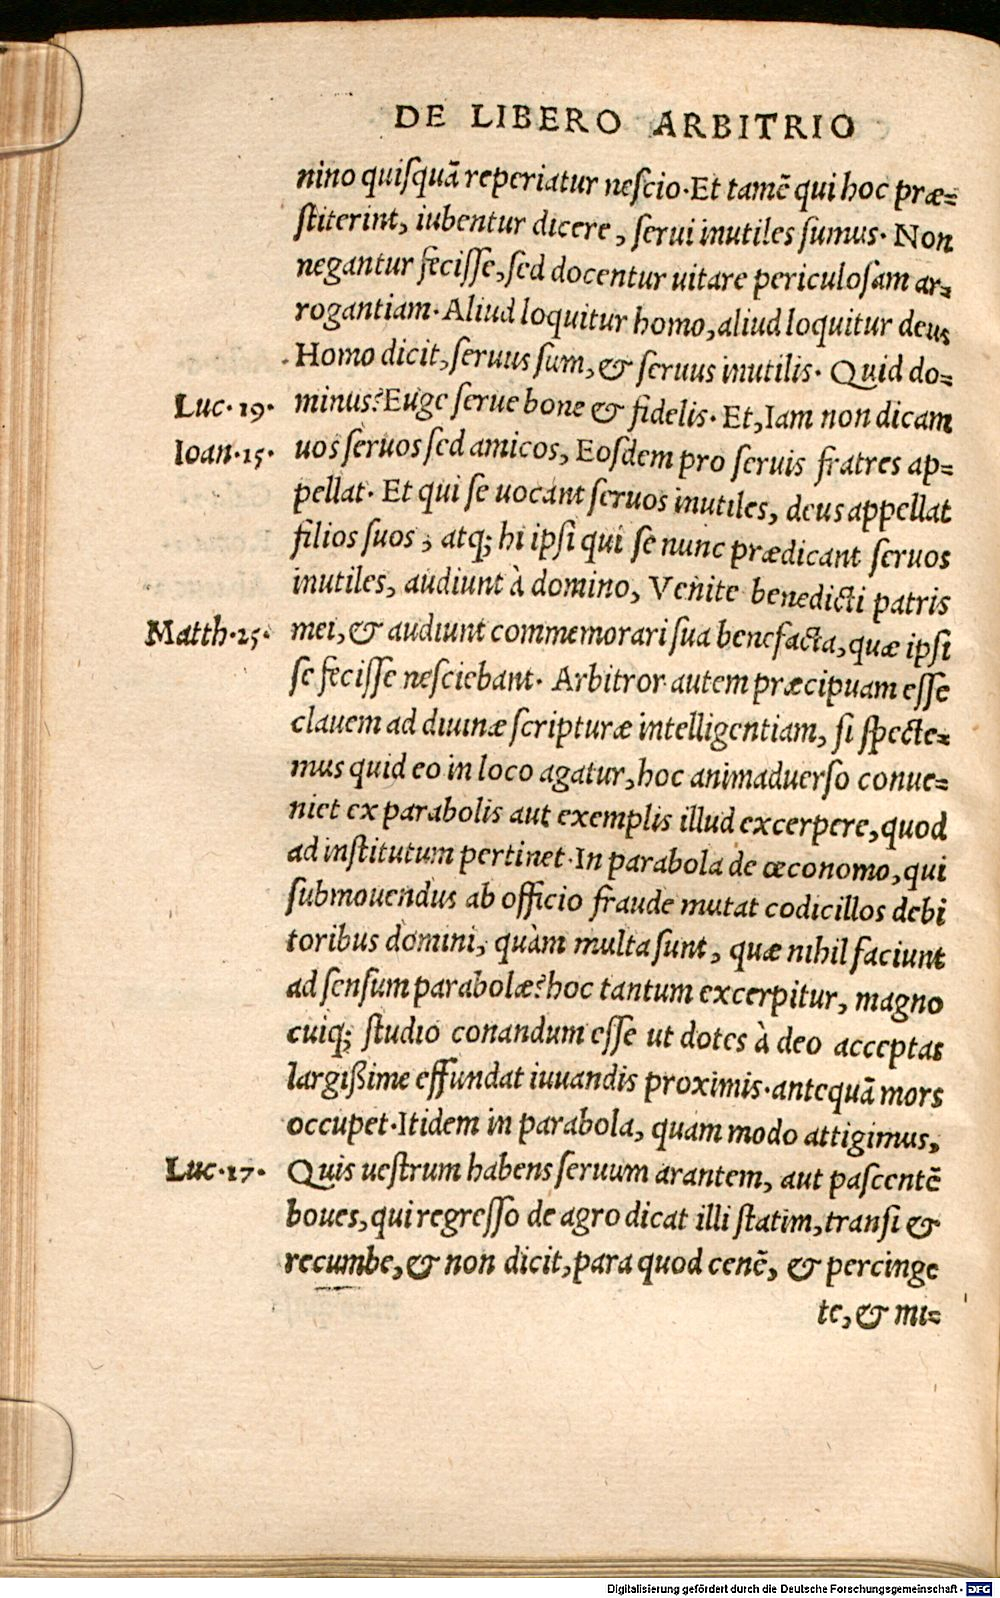 DE LIBERO ARBITRIO
nino quiſquã reperiatur neſcio·Et tamẽ qui hoc præ=
ſtiterint, iubentur dicere, ſerui inutiles ſumus· Non
negantur feciſſe, ſed docentur uitare periculoſam ar=
rogantiam·Aliud loquitur homo, aliud loquitur deus
Homo dicit, ſeruus ſum, & ſeruus inutilis· Quid do=
Luc·19· minus?Euge ſerue bone & fidelis· Et, Iam non dicam
Ioan·15· uos ſeruos ſed amicos, Eoſdem pro ſeruis fratres ap=
pellat· Et qui ſe uocant ſeruos inutiles, deus appellat
filios ſuos, atq; hi ipſi qui ſe nunc prædicant ſeruos
inutiles, audiunt à domino, Venite benedicti patris
Matth·25· mei, & audiunt commemorari ſua benefacta, quæ ipſi
ſe feciſſe neſciebant· Arbitror autem præcipuam eſſe
clauem ad diuinæ ſcripturæ intelligentiam, ſi ſpecte=
mus quid eo in loco agatur, hoc animaduerſo conue=
niet ex parabolis aut exemplis illud excerpere, quod
ad inſtitutum pertinet·In parabola de œconomo, qui
ſubmouendus ab officio fraude mutat codicillos debi
toribus domini, quàm multa ſunt, quæ nihil faciunt
ad ſenſum parabolæ?hoc tantum excerpitur, magno
cuiq; ſtudio conandum eſſe ut dotes à deo acceptas
largißime effundat iuuandis proximis·antequã mors
occupet·Itidem in parabola, quam modo attigimus,
Luc·17· Quis ueſtrum habens ſeruum arantem, aut paſcentẽ
boues, qui regreſſo de agro dicat illi ſtatim, tranſi &
recumbe, & non dicit, para quod cenẽ, & percinge
te, & mi=
Digitalisierung gefördert durch die Deutsche Forschungsgemeinschaft - DFG